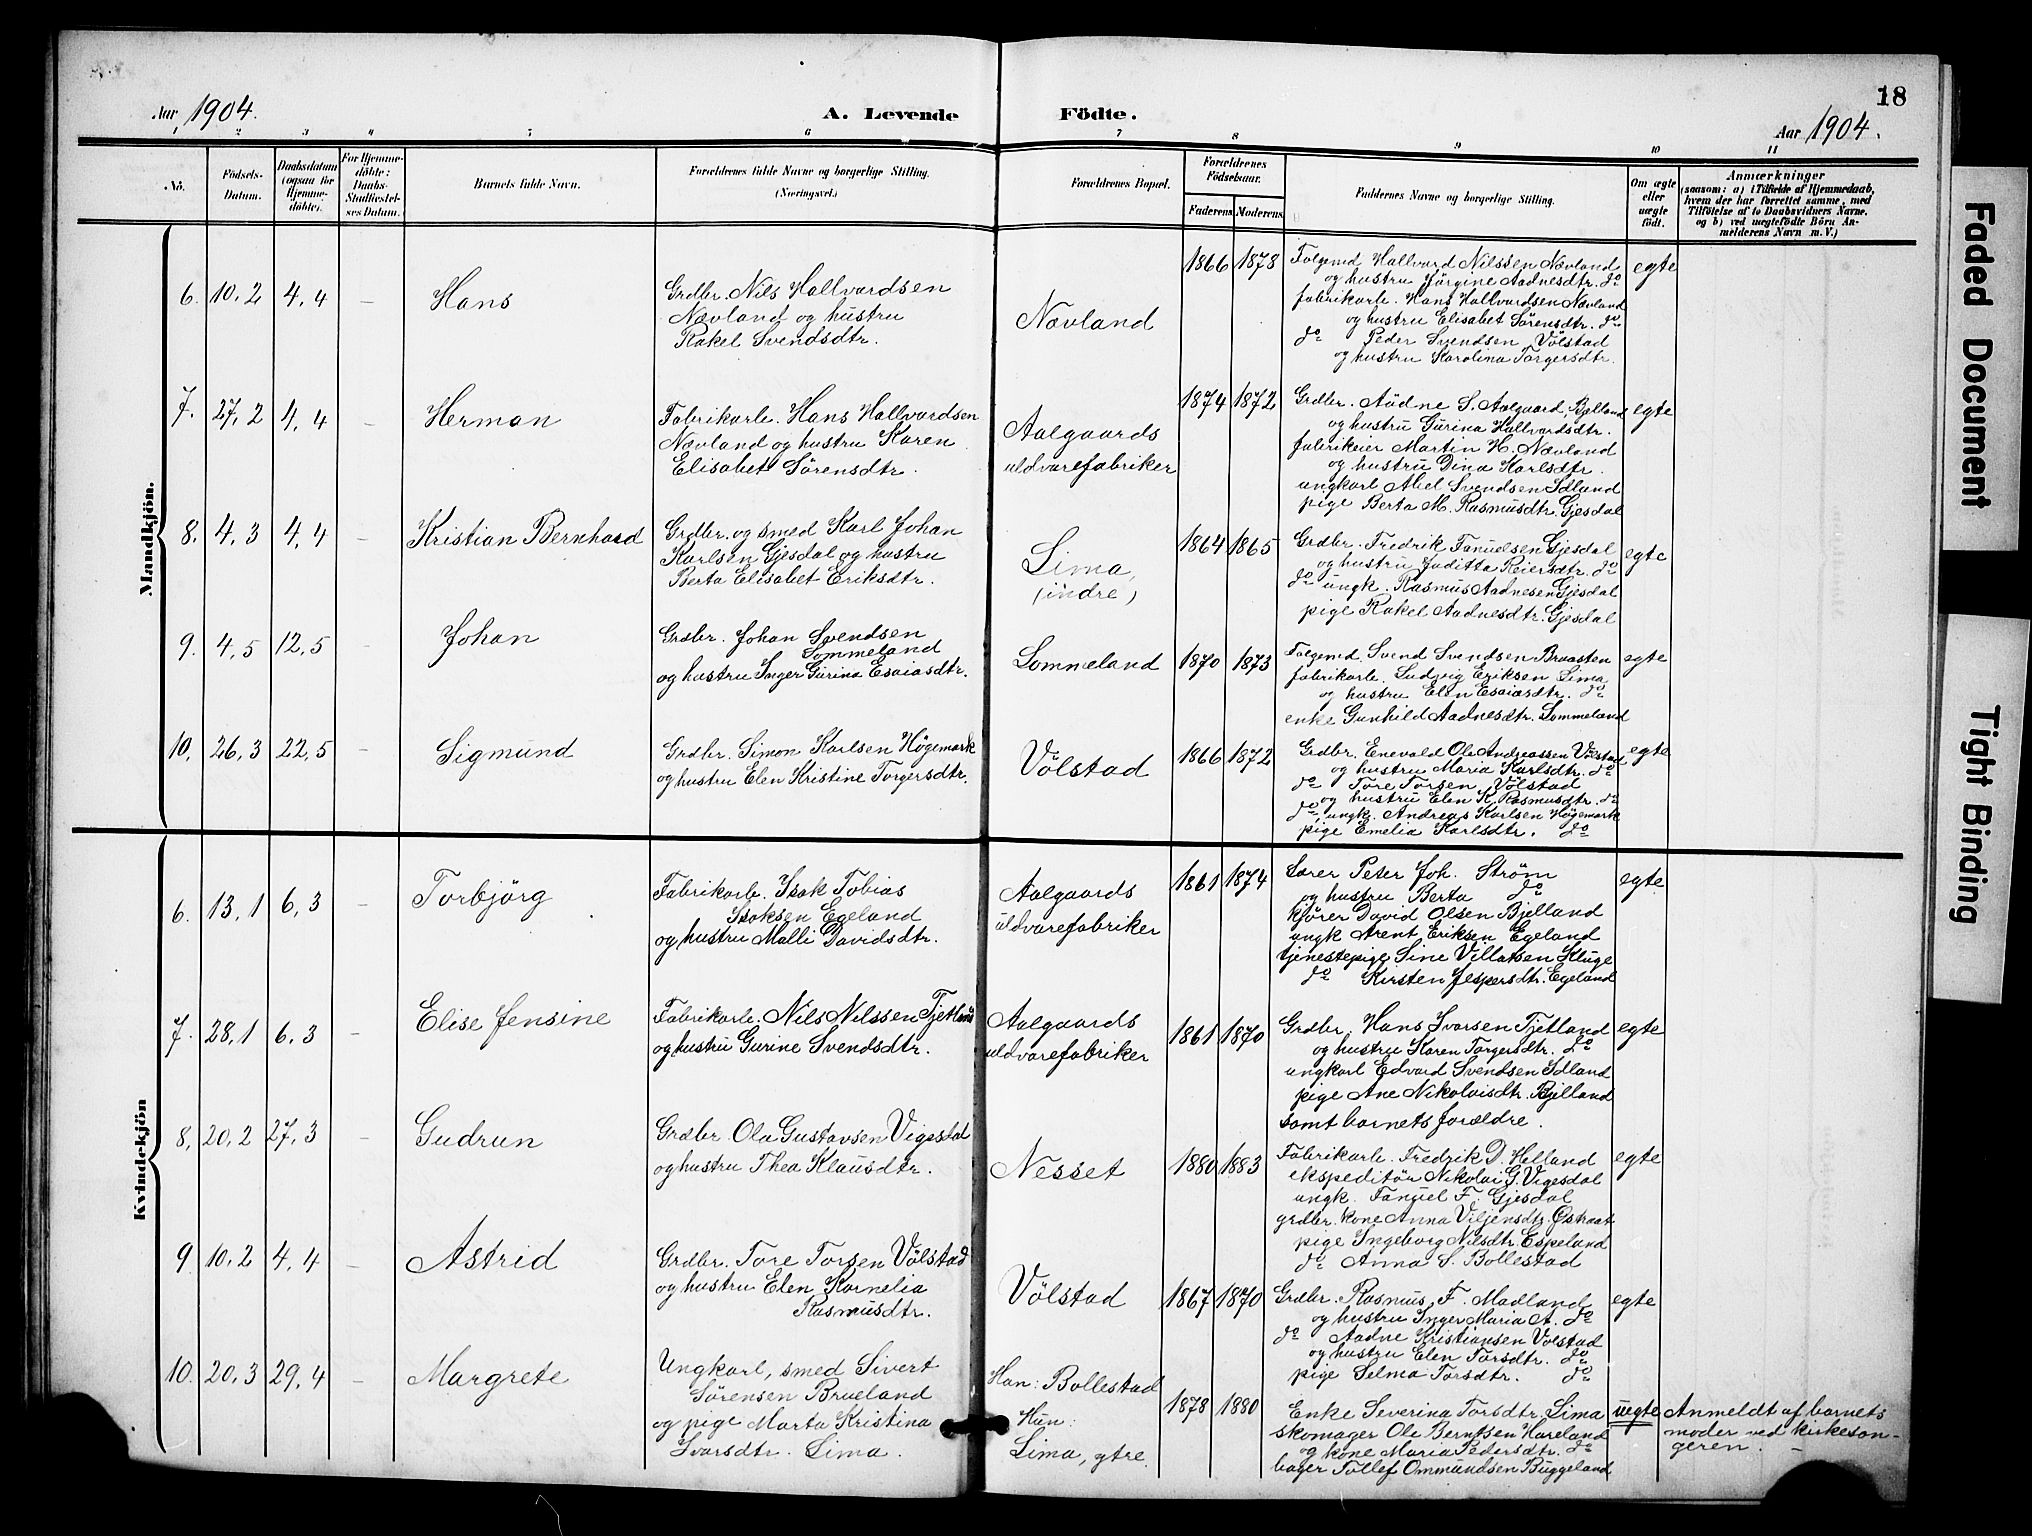 18
Aar 1904.
A. Levende Födte.
Aar 1904.
1 2 3 4 5 6 7 8 9 10 11
No.
Födsels-
Datum.
Daabsdatum
(ogsaa for
Hjemme-
döbte).
For Hjemme-
döbte:
Daabs-
Stadfæstel-
ses Datum.
Barnets fulde Navn.
Forældrenes fulde Navne og borgerlige Stilling.
(Næringsvei.)
Forældrenes Bopæl.
Forældrenes
Födselsaar.
Faderens Moderens
Faddernes Navne og borgerlige Stilling.
Om ægte
eller
uægte
födt.
Anmærkninger
(saasom: a) i Tilfælde af Hjemmedaab,
hvem der har forrettet samme, med
Tilföielse af to Daabsvidners Navne.
og b) ved uægtefödte Börn An-
melderens Navn m. V.)
Mandkjön.
6. 10,2 4,4 – Hans
Grdbr. Nils Hallvardsen
Nævland og hustru
Rakel Svendsdtr.
Nævland
1866 1873
Folgemd Hallvard Nilssen Nævland
og hustru Jörgine Aadnesdtr. do
fabrikarb. Hans Hallvardsen Nævland
og hustru Elisabet Sörensdtr. do
do Peder Svendsen Völstad
og hustru Karolina Torgersdtr.
egte
7. 27,2 4,4 – Herman
Fabrikarb. Hans Hallvardsen
Nævland og hustru Karen
Elisabet Sörensdtr.
Aalgaards
uldvarefabriker
1874 1872
Grdbr. Aadne S. Aalgaard, Bjelland
og hustru Gurina Hallvardsdtr.
fabrikeier Martin H. Nævland
og hustru Dina Karlsdtr.
ungkarl Abel Svendsen Idland
pige Berta M. Rasmusdtr. Gjesdal
egte
8. 4,3 4,4 – Kristian Bernhard
Grdbr. og smed Karl Johan
Karlsen Gjesdal og hustru
Berta Elisabet Eriksdtr.
Lima,
(indre)
1864 1865
Grdbr. Fredrik Tanuelsen Gjesdal
og hustru Juditta Reiersdtr. do
do ungk. Rasmus Aadnesen Gjesdal
pige Rakel Aadnesdtr. Gjesdal
egte
9. 4,5 12,5 – Johan
Grdbr. Johan Svendsen
Sommeland
og hustru Inger Gurina Esaiasdtr.
Sommeland
1870 1873
Folgemd. Svend Svendsen Braasten
fabrikarb. Ludvig Eriksen Lima
og hustru Elen Esaiasdtr. do
enke Gunhild Aadnesdtr. Sommeland
egte
10. 26,3 22,5 – Sigmund
Grdbr. Simon Karlsen Högemark
og hustru Elen Kristine Torgersdtr.
Völstad
1866 1872
Grdbr. Enevald Ole Andreassen Völstad
og hustru Maria Karlsdtr. do
do Tore Torsen Völstad
og hustru Elen K. Rasmusdtr. do
do, ungk. Andreas Karlsen Högemark
pige Emelia Karlsdtr. do
egte
Kvindekjön
6. 13,1 6,3 – Torbjörg
Fabrikarb. Isak Tobias
Isaksen Egeland
og hustru Malli Davidsdtr.
Aalgaards
uldvarefabriker
1861 1874
Lærer Peter Joh. Ström
og hustru Berta do
kjörer David Olsen Bjelland
ungk Arent Eriksen Egeland
tjenestepige Sine Villatsen Kluge
do Kirsten Jespersdtr. Egeland
egte
7. 28,1 6,3 – Elise Jensine
Fabrikarb. Nils Nilssen Tjetland
og hustru Gurine Svendsdtr.
Aalgaards
uldvarefabriker
1861 1870
Grdbr. Hans Ivarsen Tjetland
og hustru Karen Torgersdtr. do
ungkarl Edvard Svendsen Idland
pige Ane Nikolaisdtr. Bjelland
samt barnets forældre.
egte
8. 20,2 27,3 – Gudrun
Grdbr. Ola Gustavsen Vigesdal
og hustru Thea Klausdtr.
Nesset
1880 1883
Fabrikarb. Fredrik D. Helland
ekspeditör Nikolai G. Vigesdal
ungk. Tanuel F. Gjesdal
grdbr. kone Anna Viljensdtr. Østraat
pige Ingeborg Nilsdtr. Espeland
do Anna S. Bollestad
egte
9 10,2 4,4 – Astrid
Grdbr. Tore Torsen Völstad
og hustru Elen Kornelia
Rasmusdtr.
Völstad
1867 1870
Grdbr. Rasmus F. Madland
og hustru Inger Maria A. do
do Aadne Kristiansen Völstad
og hustru Elen Torsdtr. do
pige Selma Torsdtr. do
egte
10. 20,3 29,4 – Margrete
Ungkarl, smed Sivert
Sörensen Brueland
og pige Marta Kristina
Ivarsdtr. Lima.
Han: Bollestad
Hun:
Lima, ytre
1878 1880
Enke Severina Torsdtr. Lima
skomager Ole Berntsen Hareland
og kone Maria Pedersdtr. do
bager Tollef Ommundsen Buggeland
uegte
Anmeldt af barnets
moder ved kirkesan-
geren. –
Faded Document
Tight Binding